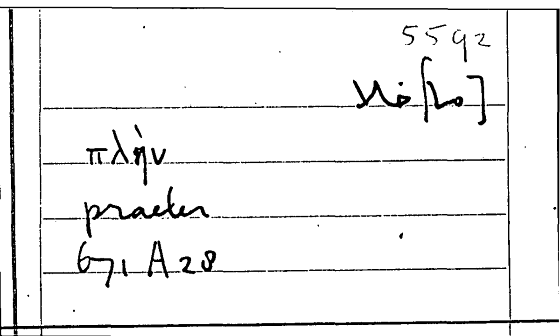 5592
πλήν
praeter
671 A 28